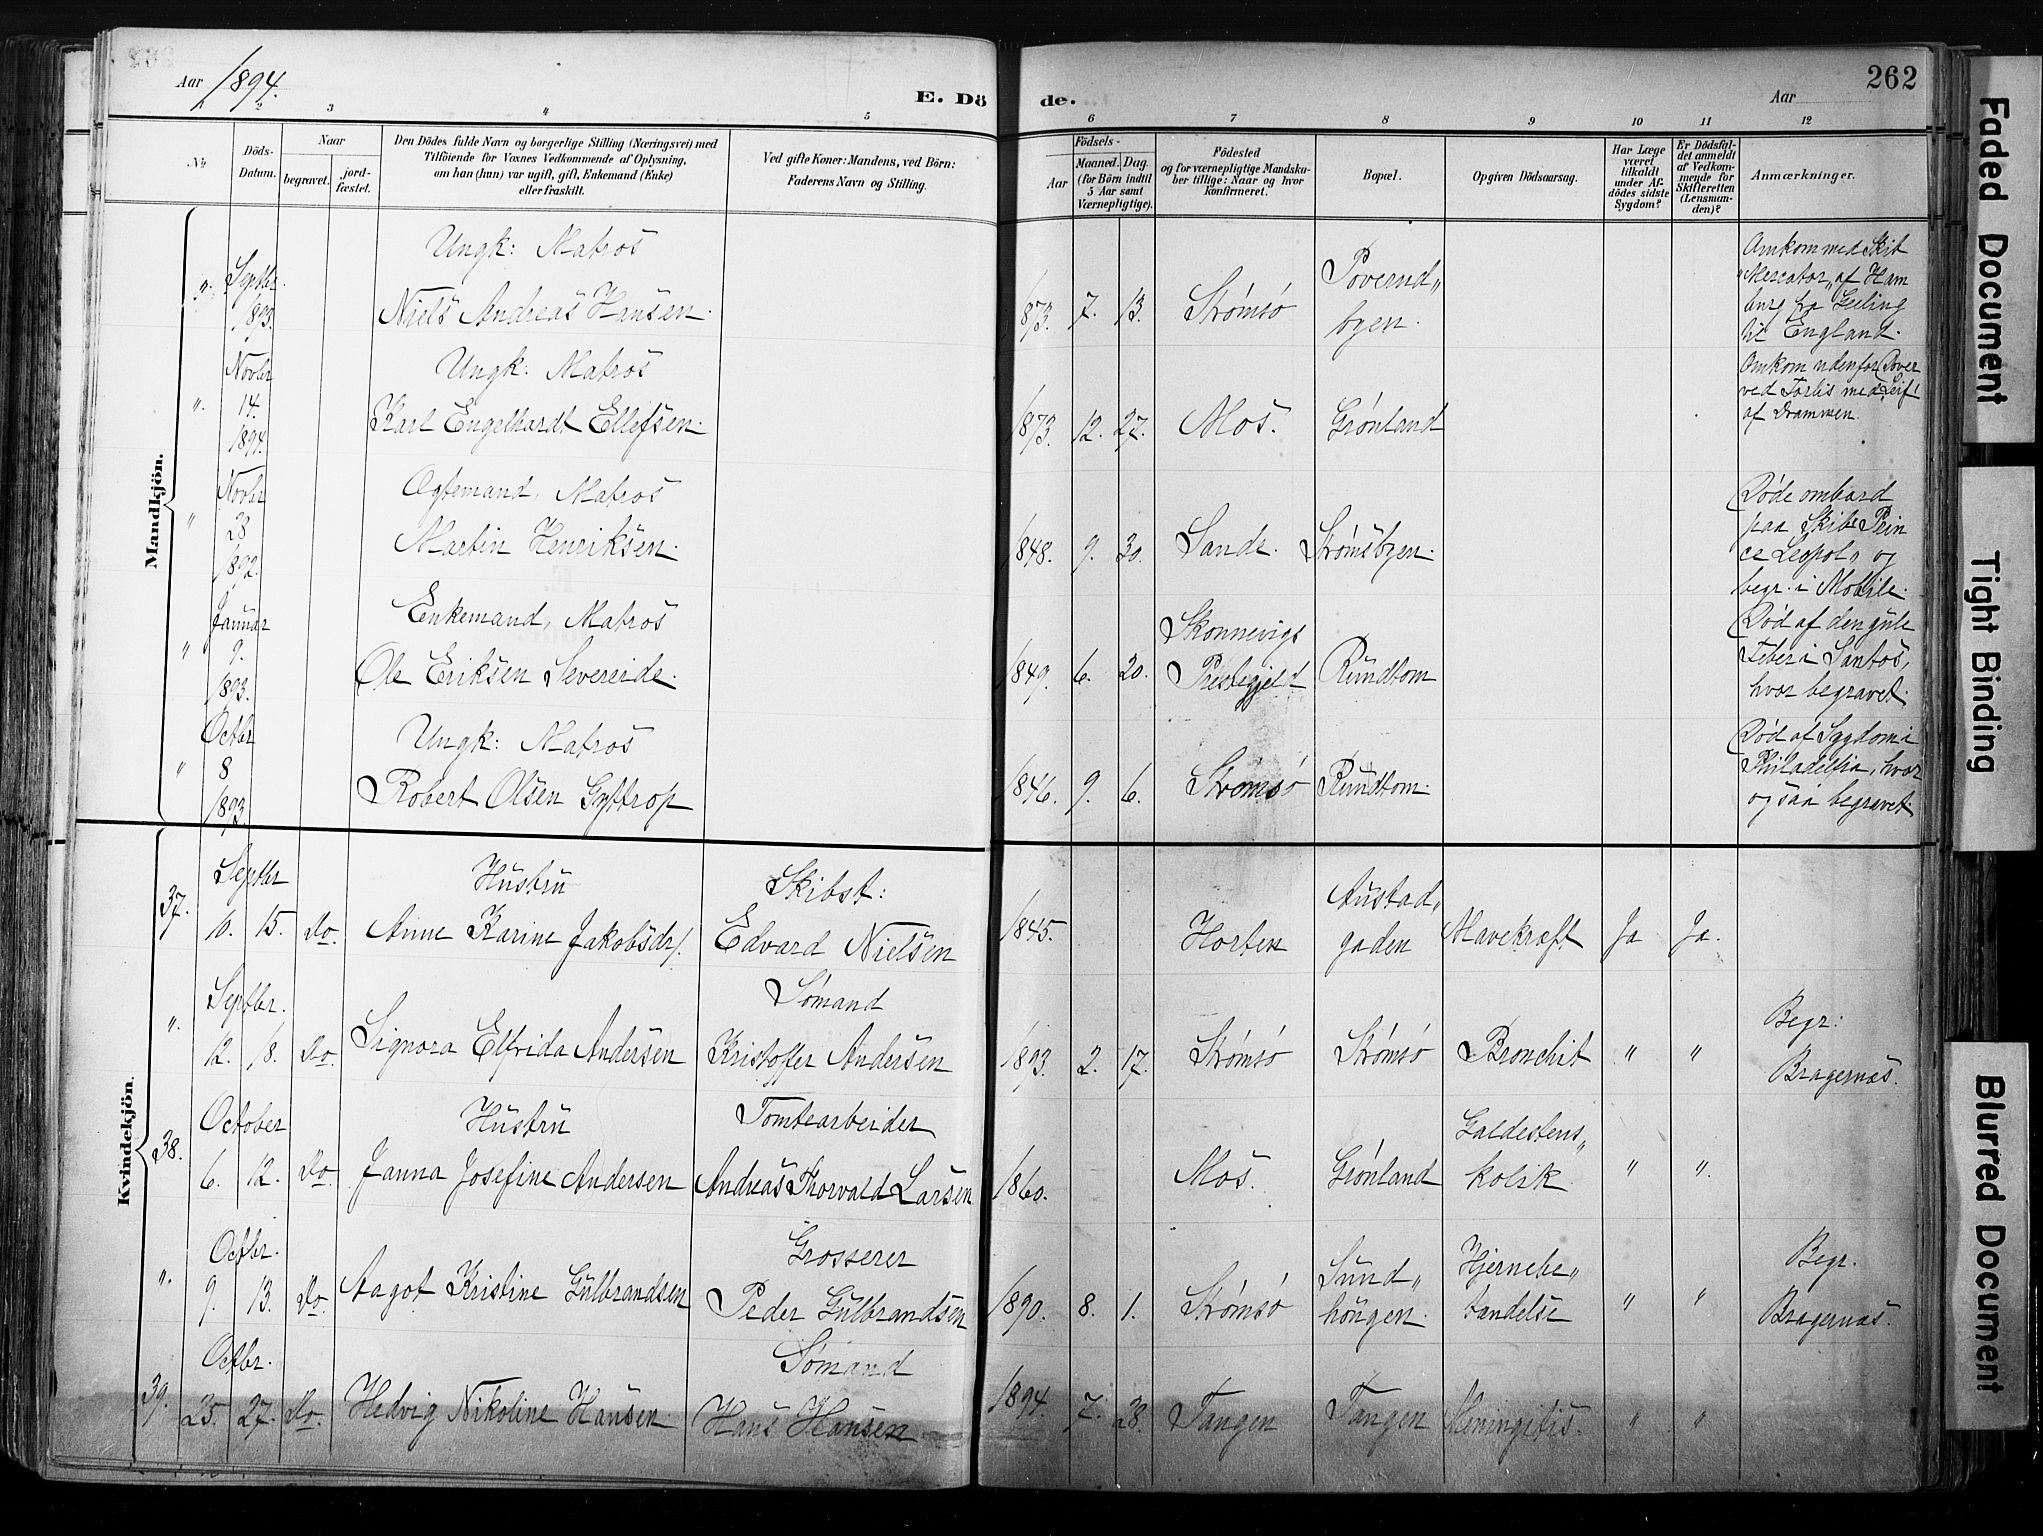 Aar 1894.
E. Dö de.
Aar
262
1 2 3 4 5 6 7 8 9 10 11 12
No
Döds-
Datum.
Naar
begravet.
jord-
fæstet.
Den Dödes fulde Navn og borgerlige Stilling (Næringsvei) med
Tilföiende for Voxnes Vedkommende af Oplysning,
om han (hun) var ugift, gift, Enkemand (Enke)
eller fraskilt.
Ved gifte Koner: Mandens, ved Börn:
Faderens Navn og Stilling.
Födsels-
Aar
Maaned. Dag.
(for Börn indtil
5 Aar samt
Værnepligtige).
Födested
og for værnepligtige Mandska-
ber tillige: Naar og hvor
konfirmeret.
Bopæl.
Opgiven Dödsaarsag.
Har Læge
været
tilkaldt
under Af-
dödes sidste
Sygdom?
Er Dödsfal-
det anmeldt
af Vedkom-
mende for
Skifteretten
(Lensman-
den)?
Anmærkninger.
Mandkjön.
Septbr.
1893.
Ungk: Matros
Niels Andreas Hansen.
1873. 7. 13. Strømsø
Povernd„
byen.
Omkom med Skib
„Mercator„ af Ham
burg fra Geeling
til England.
Novbr
14.
1894.
Ungk: Matros
Karl Engelhardt Ellefsen.
1873. 12. 27. Mos. Grønland
Omkom udenfor Dover
ved Forlis med „Leif„
af Drammen.
Novbr
28
1892.
Ogtemand, Matros
Martin Henriksen.
1848. 9. 30. Sande. Strømsbyen.
Døde ombord
paa Skibet Prin
ce Leopol„ og
begr. i Mobile.
Januar
9.
1893.
Enkemand, Matros
Ole Eriksen Severeide.
1849. 6. 20.
Skonnevigs
Prestegjeld
Rundtom
Død af den gule
Feber i Santos,
hvor begravet.
Octbr
8
1893.
Ungk: Matros
Robert Olsen Gyttrop
1846. 9. 6. Strømsø Rundtom.
Død af Sygdom i
Philadelfia, hvor
ogsaa begravet.
Kvindekjön.
37.
Septbr
10. 15. Do.
Hustru
Anne Karine Jakobsdr.
Skibst:
Edvard Nielsen
1845. Horten
Austad„
gaden
Mavekræft Ja Ja.
Septbr.
12. 18. Do
Signora Elfrida Andersen
Sømand
Kristoffer Andersen
1893. 2. 17. Strømsø Strømsø Bronchit " "
Begr:
Bragernæs.
38.
October
6. 12. Do
Hustru
Janna Josefine Andersen
Tomtearbeider
Andreas Thorvald Larsen
1860. Mos. Grønland
Galdestens„
kolik " "
Octbr.
9. 13. Do
Aagot Kristine Gulbrandsen
Grosserer
Peder Gulbrandsen
1890. 8. 1. Strømsø
Sund„
haugen.
Hjernebe„
tændelse " "
Begr.
Bragernæs.
39.
Octbr.
25. 27. Do.
Hedvig Nikoline Hansen
Sømand
Hans Hansen
1894. 7. 28. Tangen Tangen Meningitis. " "
Faded Document
Tight Binding
Blurred Document